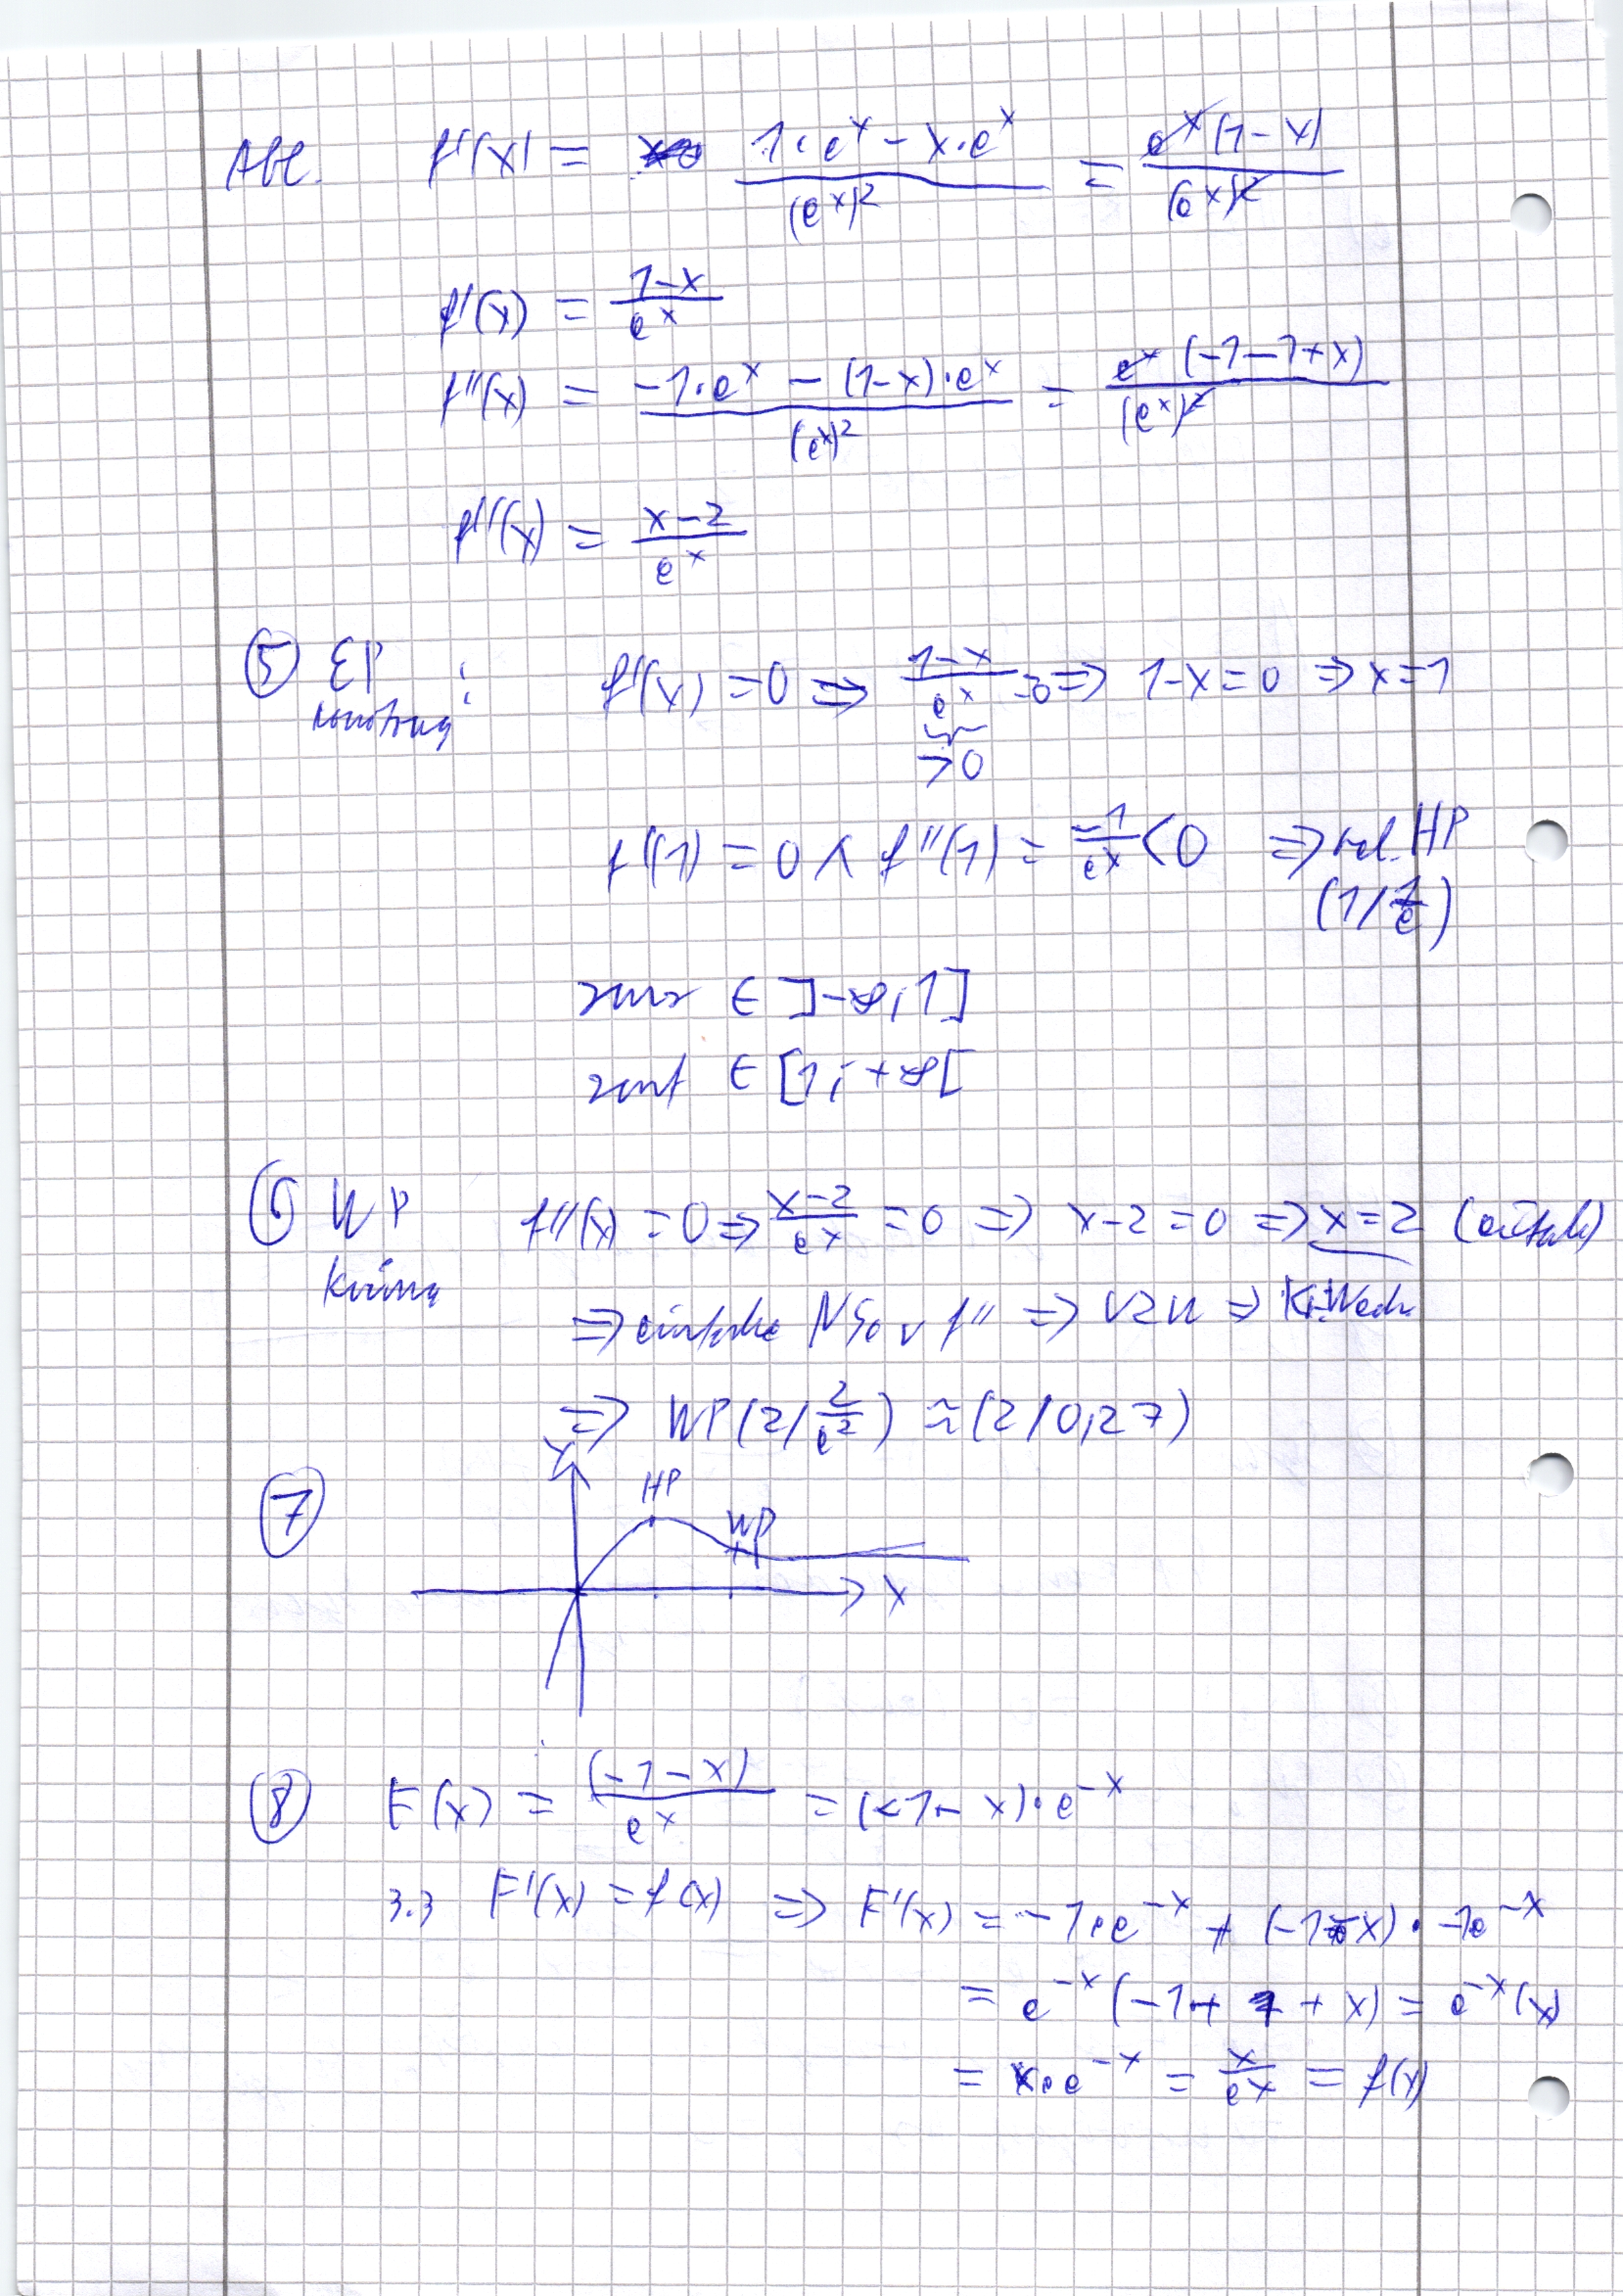 Abl. f'(x) = (1·e^x − x·e^x)/(e^x)² = (e^x(1−x))/(e^x)²
f'(x) = (1−x)/e^x
f''(x) = (−1·e^x − (1−x)·e^x)/(e^x)² = (e^x(−1−1+x))/(e^x)²
f''(x) = (x−2)/e^x
⑤ EP : f'(x) = 0 ⇒ (1−x)/e^x = 0 ⇒ 1−x = 0 ⇒ x=1
>0
f'(1) = 0 ∧ f''(1) = −1/e^x < 0 ⇒ rel. HP
(1/ 1/e)
∈ ]−∞; 1]
∈ [1; +∞[
⑥ WP f''(x) = 0 ⇒ (x−2)/e^x = 0 ⇒ x−2 = 0 ⇒ x=2 (einfach)
⇒ einfache NS v f'' ⇒ VZW ⇒ Kr.Wech
⇒ WP(2/ 2/e²) ≈ (2/0,27)
y
⑦ HP
WP
x
⑧ F(x) = (−1−x)/e^x = (−1−x)·e^−x
z.z F'(x) = f(x) ⇒ F'(x) = −1·e^−x + (−1−x)·−1e^−x
= e^−x(−1+1+x) = e^−x(x)
= x·e^−x = x/e^x = f(x)